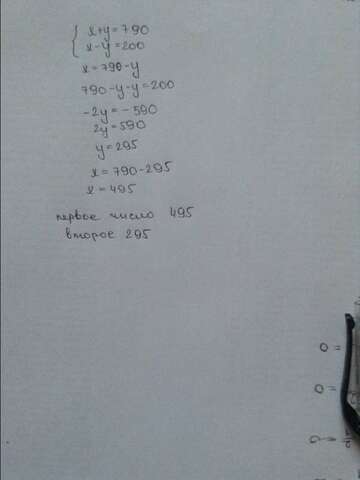 x+y=790
x-y=200
x=790-y
790-y-y=200
-2y=-590
2y=590
y=295
x=790-295
x=495
первое число 495
второе 295
0=
0=